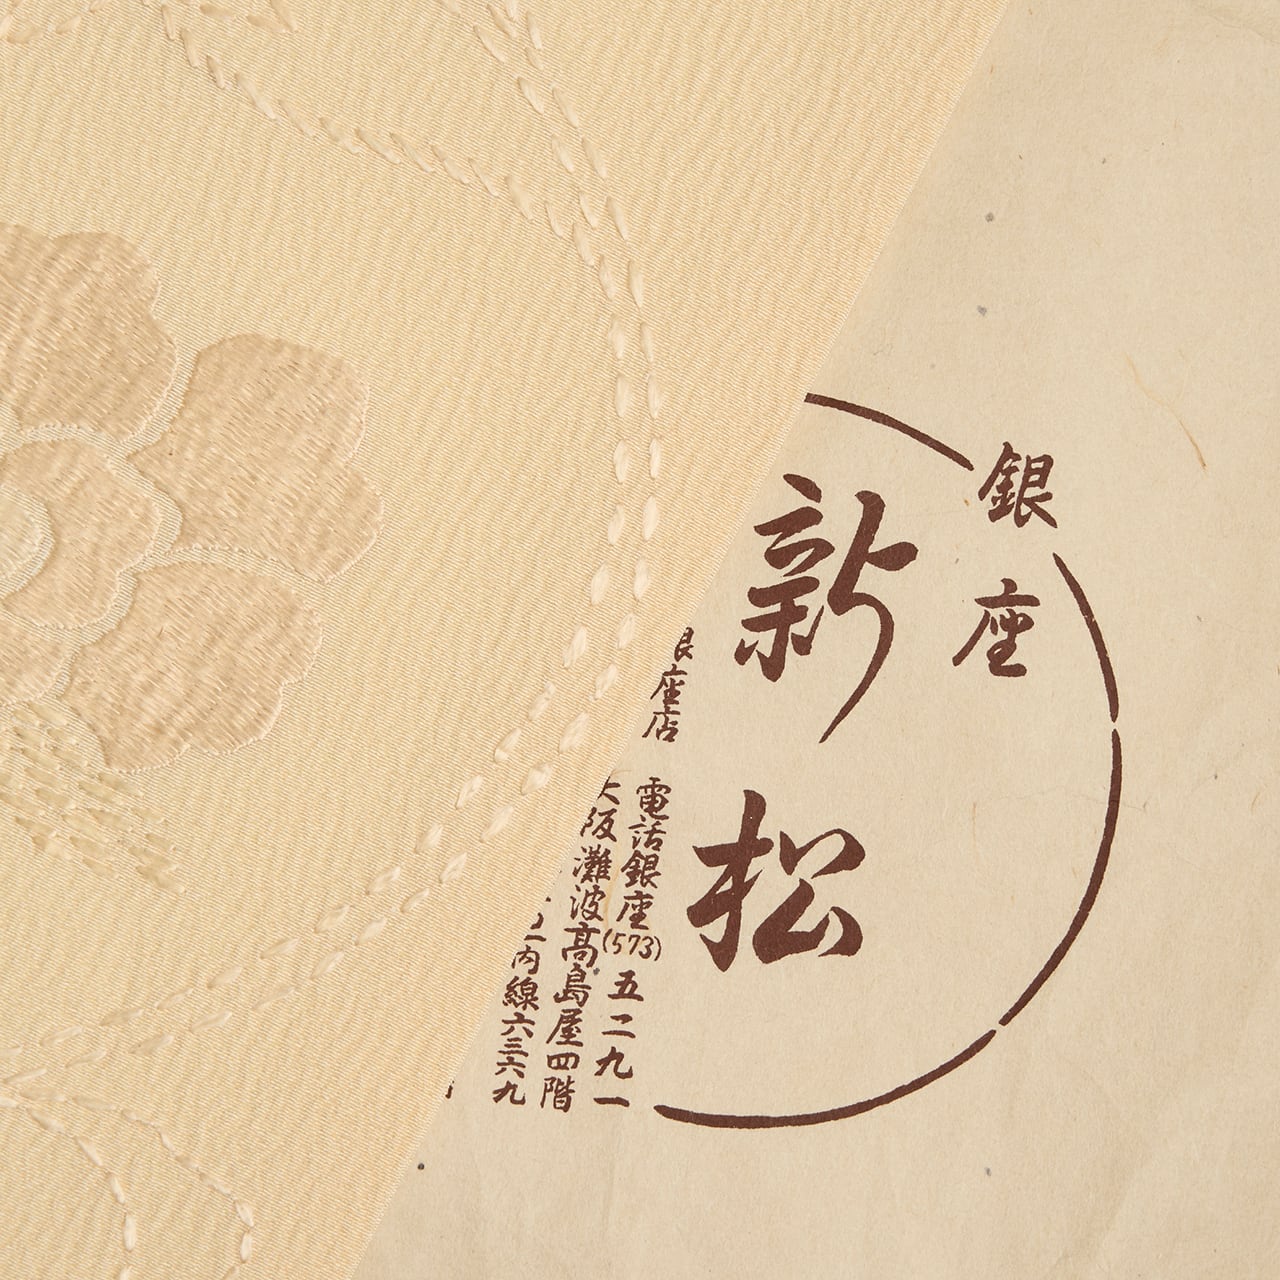 銀座
新松
座店
電話銀座(573)五二九一
大阪灘波高島屋四階
内線六三六九